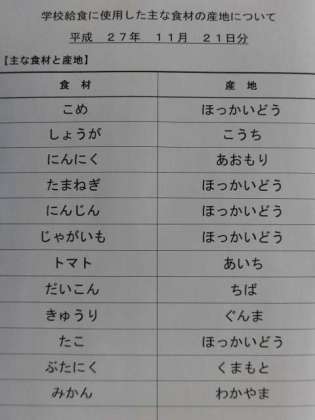 学校給食に使用した主な食材の産地について
平成 27年 11月 21日分
【主な食材と産地】
食 材 産 地
こめ ほっかいどう
しょうが こうち
にんにく あおもり
たまねぎ ほっかいどう
にんじん ほっかいどう
じゃがいも ほっかいどう
トマト あいち
だいこん ちば
きゅうり ぐんま
たこ ほっかいどう
ぶたにく くまもと
みかん わかやま